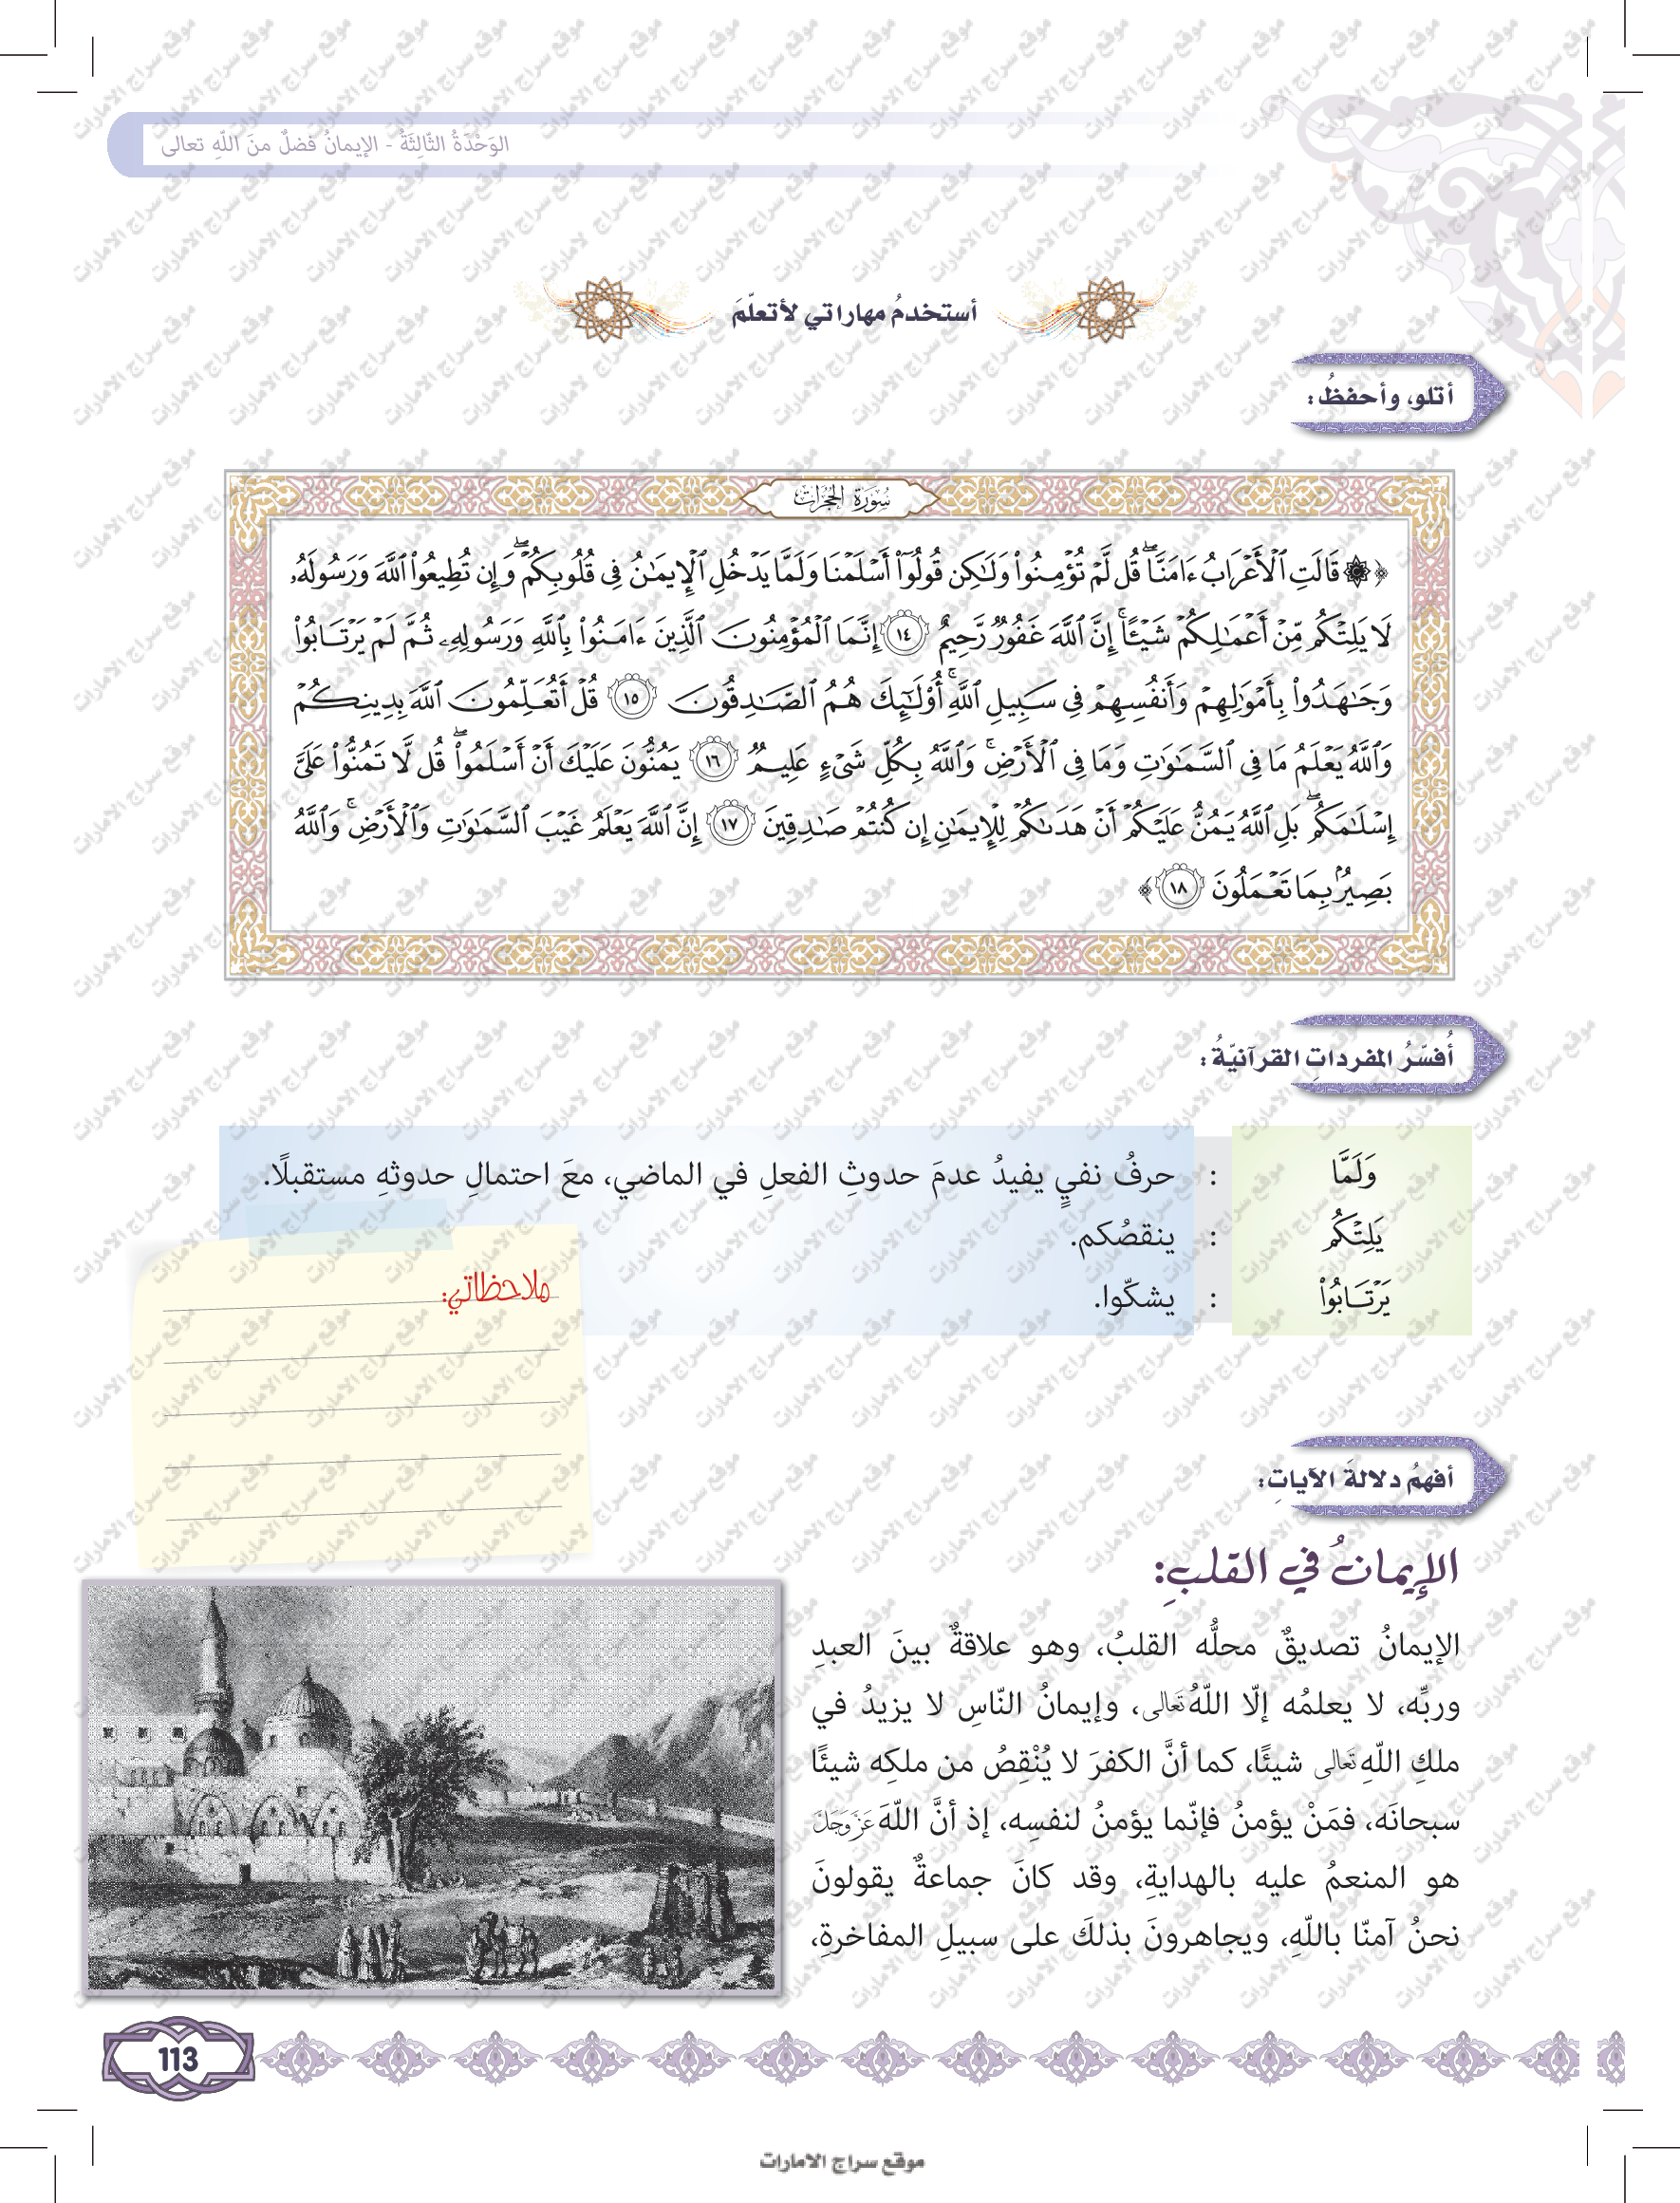 الوَحْدَةُ الثّالِثَةُ - الإيمانُ فضلٌ منَ اللّهِ تعالى
أستخدمُ مهاراتي لأتعلّمَ
أتلو، وأحفظُ:
سُورَةُ الحُجُرَات
﴿۞ قَالَتِ ٱلۡأَعۡرَابُ ءَامَنَّاۖ قُل لَّمۡ تُؤۡمِنُواْ وَلَٰكِن قُولُوٓاْ أَسۡلَمۡنَا وَلَمَّا يَدۡخُلِ ٱلۡإِيمَٰنُ فِي قُلُوبِكُمۡۖ وَإِن تُطِيعُواْ ٱللَّهَ وَرَسُولَهُۥ
لَا يَلِتۡكُم مِّنۡ أَعۡمَٰلِكُمۡ شَيۡـًٔاۚ إِنَّ ٱللَّهَ غَفُورٌ رَّحِيمٌ ١٤ إِنَّمَا ٱلۡمُؤۡمِنُونَ ٱلَّذِينَ ءَامَنُواْ بِٱللَّهِ وَرَسُولِهِۦ ثُمَّ لَمۡ يَرۡتَابُواْ
وَجَٰهَدُواْ بِأَمۡوَٰلِهِمۡ وَأَنفُسِهِمۡ فِي سَبِيلِ ٱللَّهِۚ أُوْلَٰٓئِكَ هُمُ ٱلصَّٰدِقُونَ ١٥ قُلۡ أَتُعَلِّمُونَ ٱللَّهَ بِدِينِكُمۡ
وَٱللَّهُ يَعۡلَمُ مَا فِي ٱلسَّمَٰوَٰتِ وَمَا فِي ٱلۡأَرۡضِۚ وَٱللَّهُ بِكُلِّ شَيۡءٍ عَلِيمٌ ١٦ يَمُنُّونَ عَلَيۡكَ أَنۡ أَسۡلَمُواْۖ قُل لَّا تَمُنُّواْ عَلَيَّ
إِسۡلَٰمَكُمۖ بَلِ ٱللَّهُ يَمُنُّ عَلَيۡكُمۡ أَنۡ هَدَىٰكُمۡ لِلۡإِيمَٰنِ إِن كُنتُمۡ صَٰدِقِينَ ١٧ إِنَّ ٱللَّهَ يَعۡلَمُ غَيۡبَ ٱلسَّمَٰوَٰتِ وَٱلۡأَرۡضِۚ وَٱللَّهُ
بَصِيرُۢ بِمَا تَعۡمَلُونَ ١٨﴾
أُفسّرُ المفرداتِ القرآنيّةُ:
وَلَمَّا : حرفُ نفيٍ يفيدُ عدمَ حدوثِ الفعلِ في الماضي، معَ احتمالِ حدوثهِ مستقبلًا.
يَلِتۡكُم : ينقصُكم.
يَرۡتَابُواْ : يشكّوا.
ملاحظاتي:
أفهمُ دلالةَ الآياتِ:
الإيمانُ في القلبِ:
الإيمانُ تصديقٌ محلُّه القلبُ، وهو علاقةٌ بينَ العبدِ
وربِّه، لا يعلمُه إلّا اللّهُ تَعَالى، وإيمانُ النّاسِ لا يزيدُ في
ملكِ اللّهِ تَعَالى شيئًا، كما أنَّ الكفرَ لا يُنْقِصُ من ملكِه شيئًا
سبحانَه، فمَنْ يؤمنُ فإنّما يؤمنُ لنفسِه، إذ أنَّ اللّهَ عَزَّ وَجَلَّ
هو المنعمُ عليه بالهدايةِ، وقد كانَ جماعةٌ يقولونَ
نحنُ آمنّا باللّهِ، ويجاهرونَ بذلكَ على سبيلِ المفاخرةِ،
113
موقع سراج الامارات